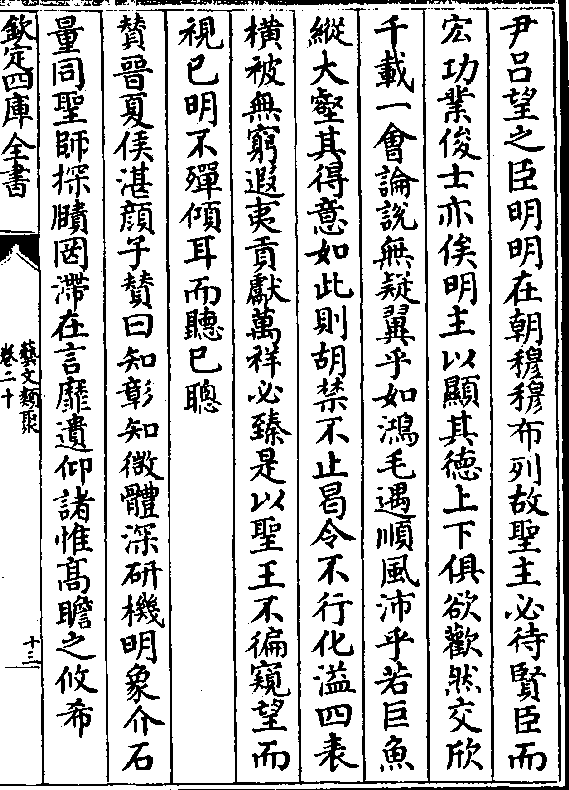 尹呂望之臣明明在朝穆穆布列故聖主必待賢臣而
宏功業俊士亦俟明主以顯其徳上下俱欲歡然交欣
千載一會論說無疑翼乎如鴻毛遇順風沛乎若巨魚
縱大壑其得意如此則胡禁不止曷令不行化溢四表
橫被無窮遐夷貢獻萬祥必臻是以聖王不徧窺望而
視已明不殫傾耳而聽已聰
賛晉夏侯湛顔子賛曰知彰知微體深研機明象介石
量同聖師探賾罔滯在言靡遺仰諸惟髙瞻之攸希
欽定四庫全書
藝文類聚
卷二十
十三